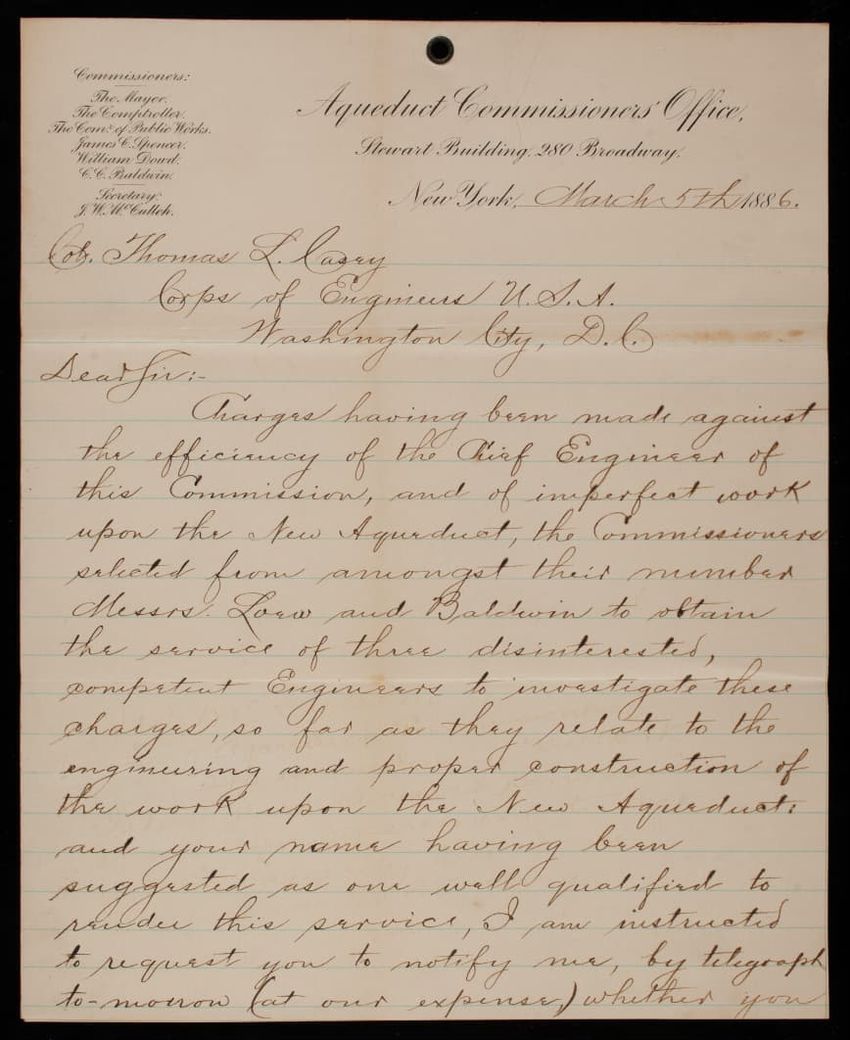 Commissioners:
The Mayor.
The Comptroller.
The Comr. of Public Works.
James C. Spencer.
William Dowd.
C. C. Baldwin.
Secretary:
J. W. McCulloh.
Aqueduct Commissioners' Office,
Stewart Building, 280 Broadway.
New York, March 5th 1886.
Col. Thomas L. Casey
Corps of Engineers U. S. A.
Washington City, D. C.
Dear Sir:-
Charges having been made against
the efficiency of the Chief Engineer of
this Commission, and of imperfect work
upon the New Aqueduct, the Commissioners
selected from amongst their number
Messrs. Loew and Baldwin to obtain
the service of three disinterested,
competent Engineers to investigate these
charges, so far as they relate to the
engineering and proper construction of
the work upon the New Aqueduct:
and your name having been
suggested as one well qualified to
render this service, I am instructed
to request you to notify me, by telegraph
to-morrow (at our expense,) whether you